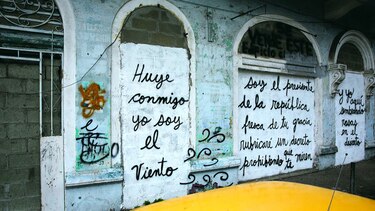 Huye
conmigo
yo soy
el
Viento
soy el presidente
de la república
fresca de tu gracia
rubricaré un decreto
prohibiendo que
te miren
y yo
aquí
sembrando
rosas
en el
desierto